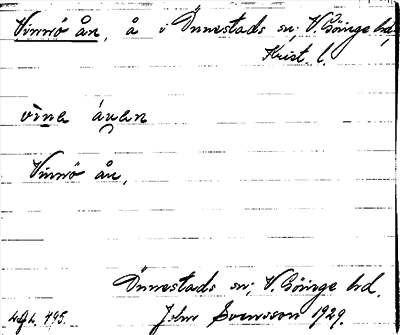 Vinnö ån, å i Önnestads sn; V. Göinge hd,
Krist. l.
vìne áuen
Vinnö ån,
Önnestads sn; V. Göinge hd.
John Svensson 1929.